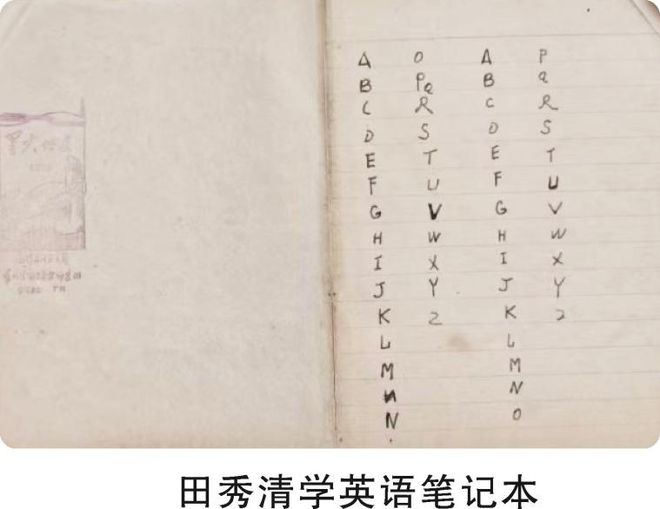 A
B
C
D
E
F
G
H
I
J
K
L
M
N
N
O
PQ
R
S
T
U
V
W
X
Y
Z
A
B
C
D
E
F
G
H
I
J
K
L
M
N
O
P
Q
R
S
T
U
V
W
X
Y
Z
田秀清学英语笔记本